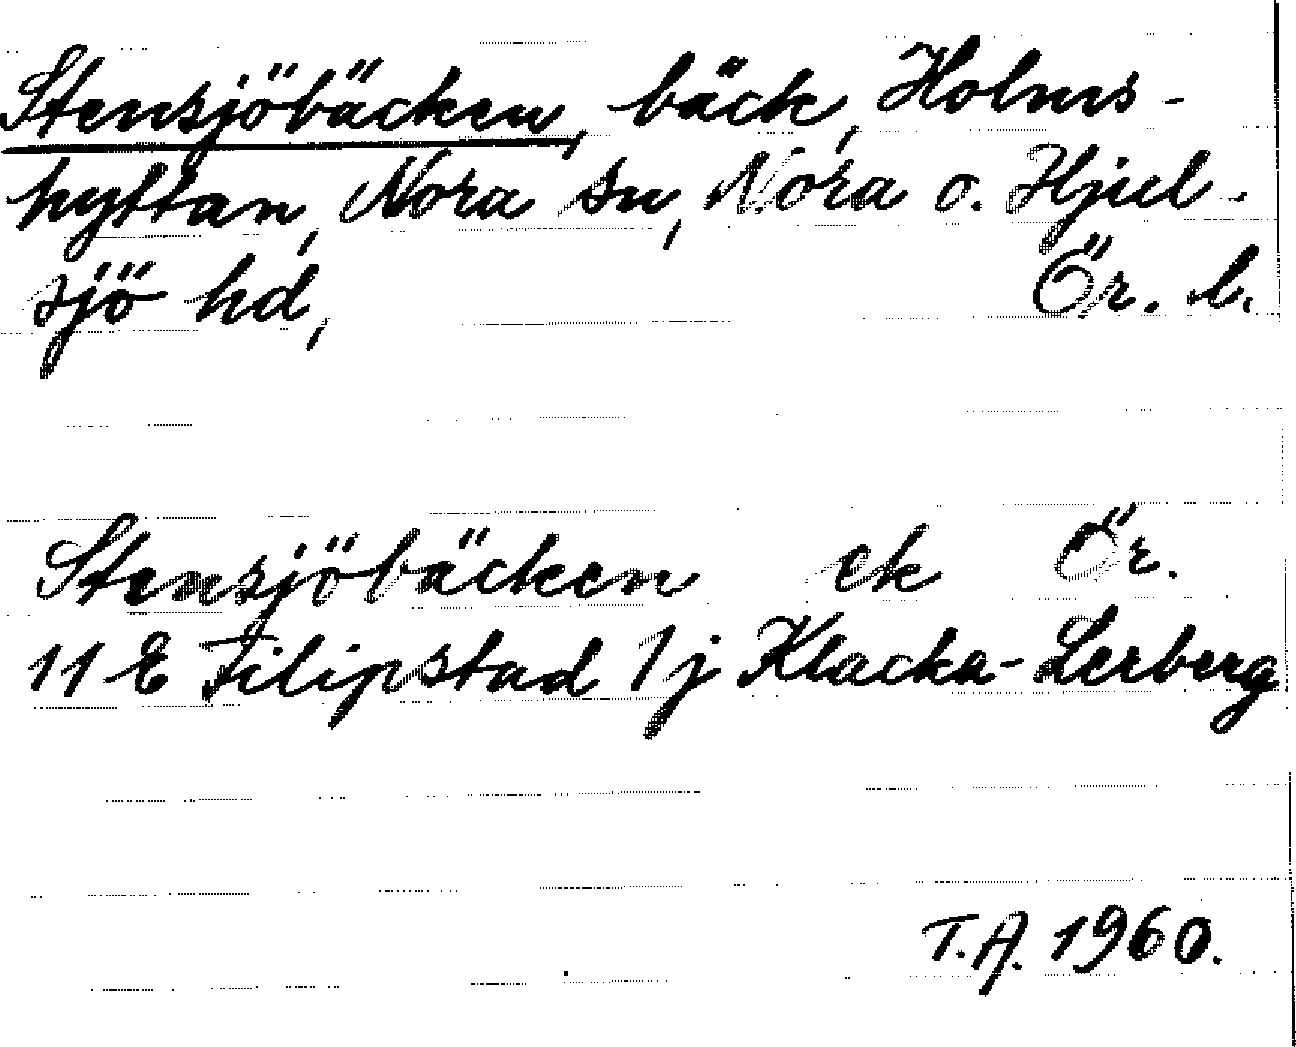 Stensjöbäcken, bäck, Holms-
hyttan, Nora sn, Nora o. Hjul-
sjö hd, Ör. l.
Stensjöbäcken ek Ör.
11 E Filipstad 1j Klacka-Lerberg
T.A. 1960.